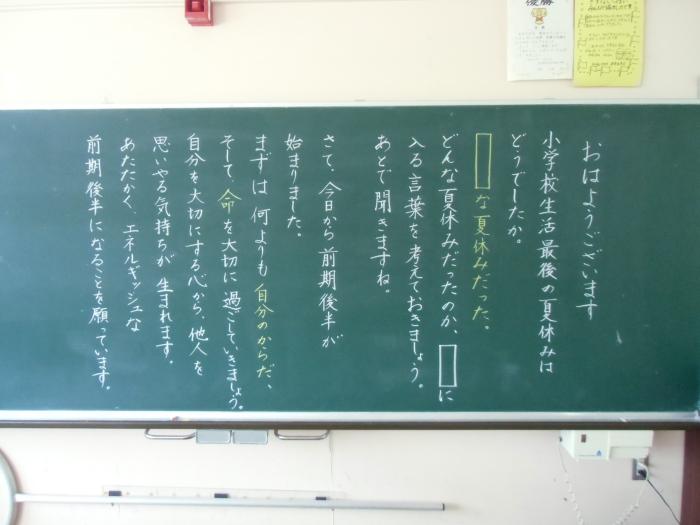 おはようございます
小学校生活最後の夏休みは
どうでしたか。
な夏休みだった。
どんな夏休みだったのか、に
入る言葉を考えておきましょう。
あとで聞きますね。
さて、今日から前期後半が
始まりました。
まずは何よりも自分のからだ、
そして、命を大切に過ごしていきましょう。
自分を大切にする心から、他人を
思いやる気持ちが生まれます。
あたたかく、エネルギッシュな
前期後半になることを願っています。
優勝